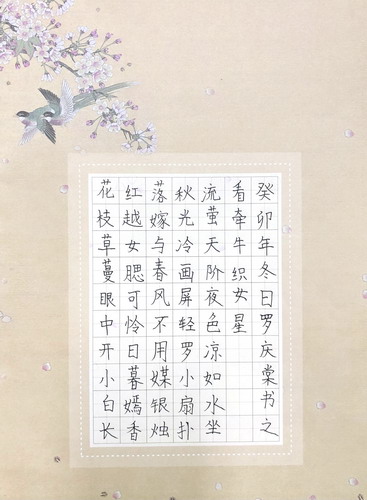 花枝草蔓眼中开小白长
红越女腮可怜日暮嫣香
落嫁与春风不用媒银烛
秋光冷画屏轻罗小扇扑
流萤天阶夜色凉如水坐
看牵牛织女星
癸卯年冬日罗庆棠书之